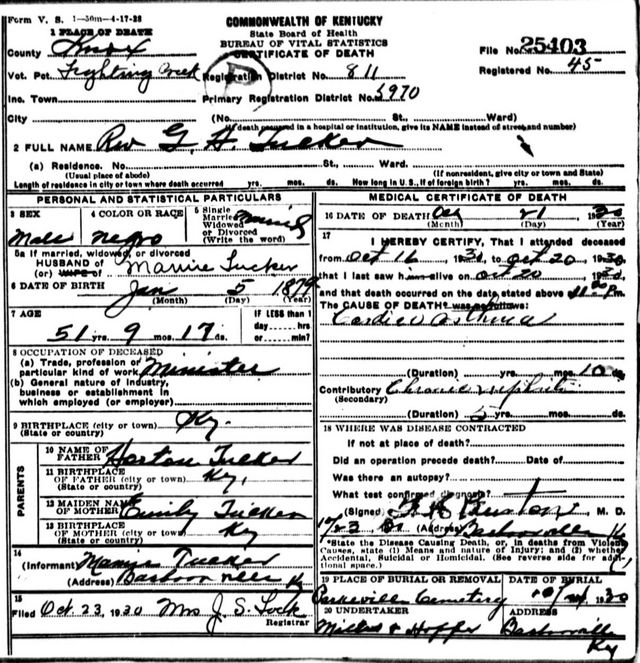 Form V. S. 1-50m-4-17-28
COMMONWEALTH OF KENTUCKY
State Board of Health
BUREAU OF VITAL STATISTICS
CERTIFICATE OF DEATH
1 PLACE OF DEATH
County Knox
File No. 25403
Vot. Pct. Fighting Creek Registration District No. 811
Registered No. 45
Inc. Town Primary Registration District No. 5970
City (No. St., Ward)
(If death occurred in a hospital or institution, give its NAME instead of street and number)
2 FULL NAME Rev G. H. Tucker
(a) Residence. No. St., Ward.
(Usual place of abode) (If nonresident, give city or town and State)
Length of residence in city or town where death occurred yrs. mos. ds. How long in U.S., if of foreign birth? yrs. mos. ds.
PERSONAL AND STATISTICAL PARTICULARS
3 SEX
Male
4 COLOR OR RACE
negro
5 Single
Married
Widowed
or Divorced
(Write the word)
Married
5a If married, widowed, or divorced
HUSBAND of
(or) WIFE of Mamie Tucker
6 DATE OF BIRTH Jan 5 1879
(Month) (Day) (Year)
7 AGE
51 yrs. 9 mos. 17 ds.
IF LESS than 1
day----hrs
or----min?
8 OCCUPATION OF DECEASED
(a) Trade, profession, or
particular kind of work Minister
(b) General nature of industry,
business or establishment in
which employed (or employer)
9 BIRTHPLACE (city or town) Ky.
(State or country)
PARENTS
10 NAME OF
FATHER Horton Tucker
11 BIRTHPLACE
OF FATHER (city or town) Ky.
(State or country)
12 MAIDEN NAME
OF MOTHER Emily Tucker
13 BIRTHPLACE
OF MOTHER (city or town) Ky
(State or country)
14
(Informant) Mamie Tucker
(Address) Barbourville Ky
15
Filed Oct. 23, 1930 Mrs J. S. Lock
Registrar
MEDICAL CERTIFICATE OF DEATH
16 DATE OF DEATH Oct 21 1930
(Month) (Day) (Year)
17
I HEREBY CERTIFY, That I attended deceased
from Oct 16, 1930, to Oct 20, 1930
that I last saw him alive on Oct 20, 1930,
and that death occurred on the date stated above 11 P.m.
The CAUSE OF DEATH was as follows:
Cardiac Asthma
(Duration) yrs. mos. 10 ds.
Contributory Chronic nephritis
(Secondary)
(Duration) 5 yrs. mos. ds.
18 WHERE WAS DISEASE CONTRACTED
If not at place of death?
Did an operation precede death? Date of
Was there an autopsy?
What test confirmed diagnosis?
(Signed) Burton M. D.
10/23 30 (Address) Barbourville Ky
*State the Disease Causing Death, or, in deaths from Violent
Causes, state (1) Means and nature of Injury; and (2) whether
Accidental, Suicidal or Homicidal. (See reverse side for addi-
tional space.)
19 PLACE OF BURIAL OR REMOVAL
Cemetery
DATE OF BURIAL
1930
20 UNDERTAKER
Hopper
ADDRESS
Barbourville
Ky